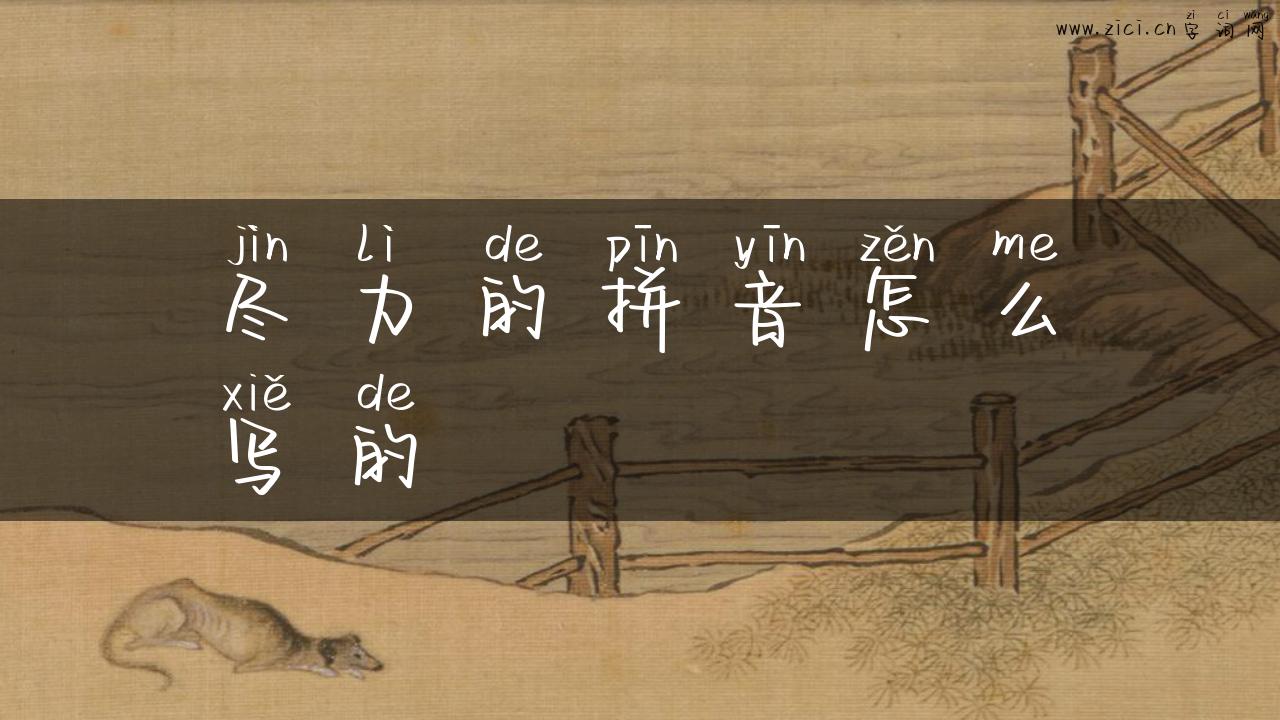 zì cí wang
www.zici.cn 字词网
jìn lì de pīn yīn zěn me
尽力的拼音怎么
xiě de
写的